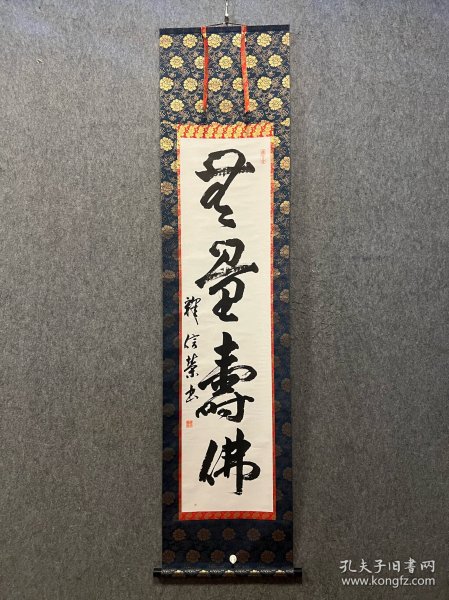 無量壽佛
釋信榮書
孔夫子旧书网
www.kongfz.com